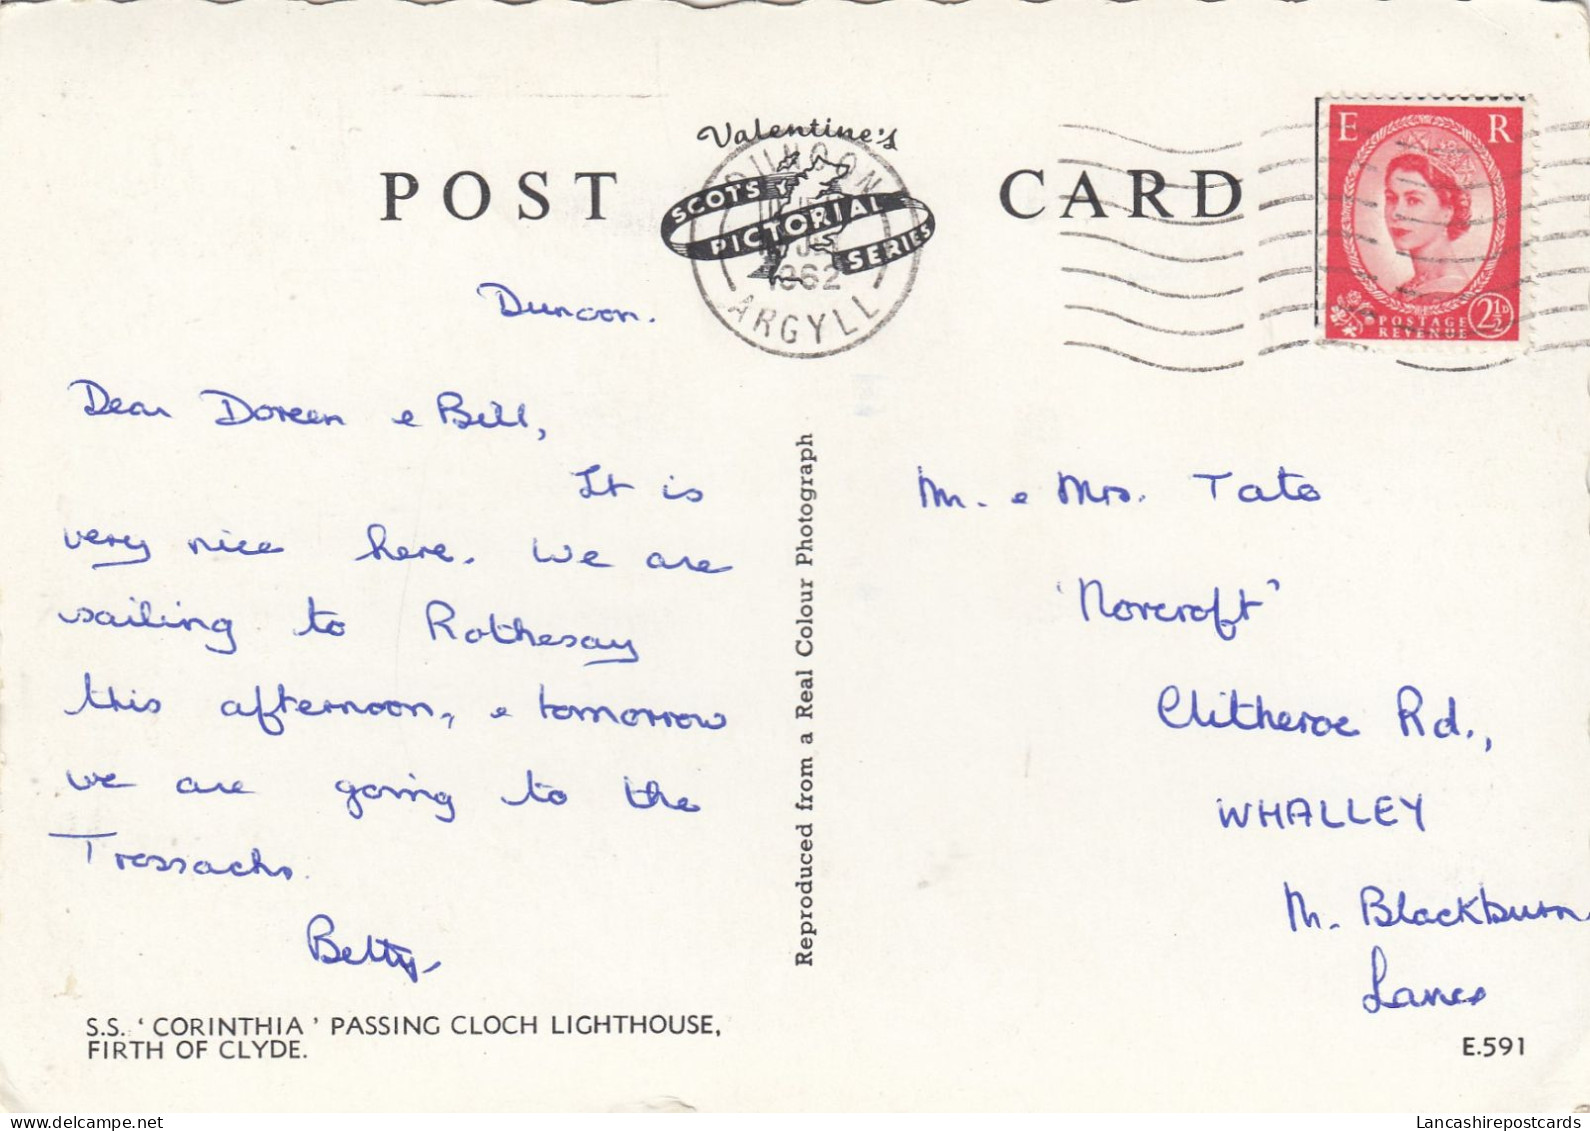 Valentine's
POST CARD
SCOTS
PICTORIAL
SERIES
DUNOON
1962
ARGYLL
E R
POSTAGE
REVENUE
2½D
Dunoon.
Dear Doreen & Bill,
It is
very nice here. We are
sailing to Rothesay
this afternoon, & tomorrow
we are going to the
Trossachs.
Betty
S.S. ‘CORINTHIA’ PASSING CLOCH LIGHTHOUSE,
FIRTH OF CLYDE.
Reproduced from a Real Colour Photograph
Mr. & Mrs. Tate
‘Norcroft’
Clitheroe Rd.,
WHALLEY
Nr. Blackburn
Lancs
E.591
Lancashirepostcards